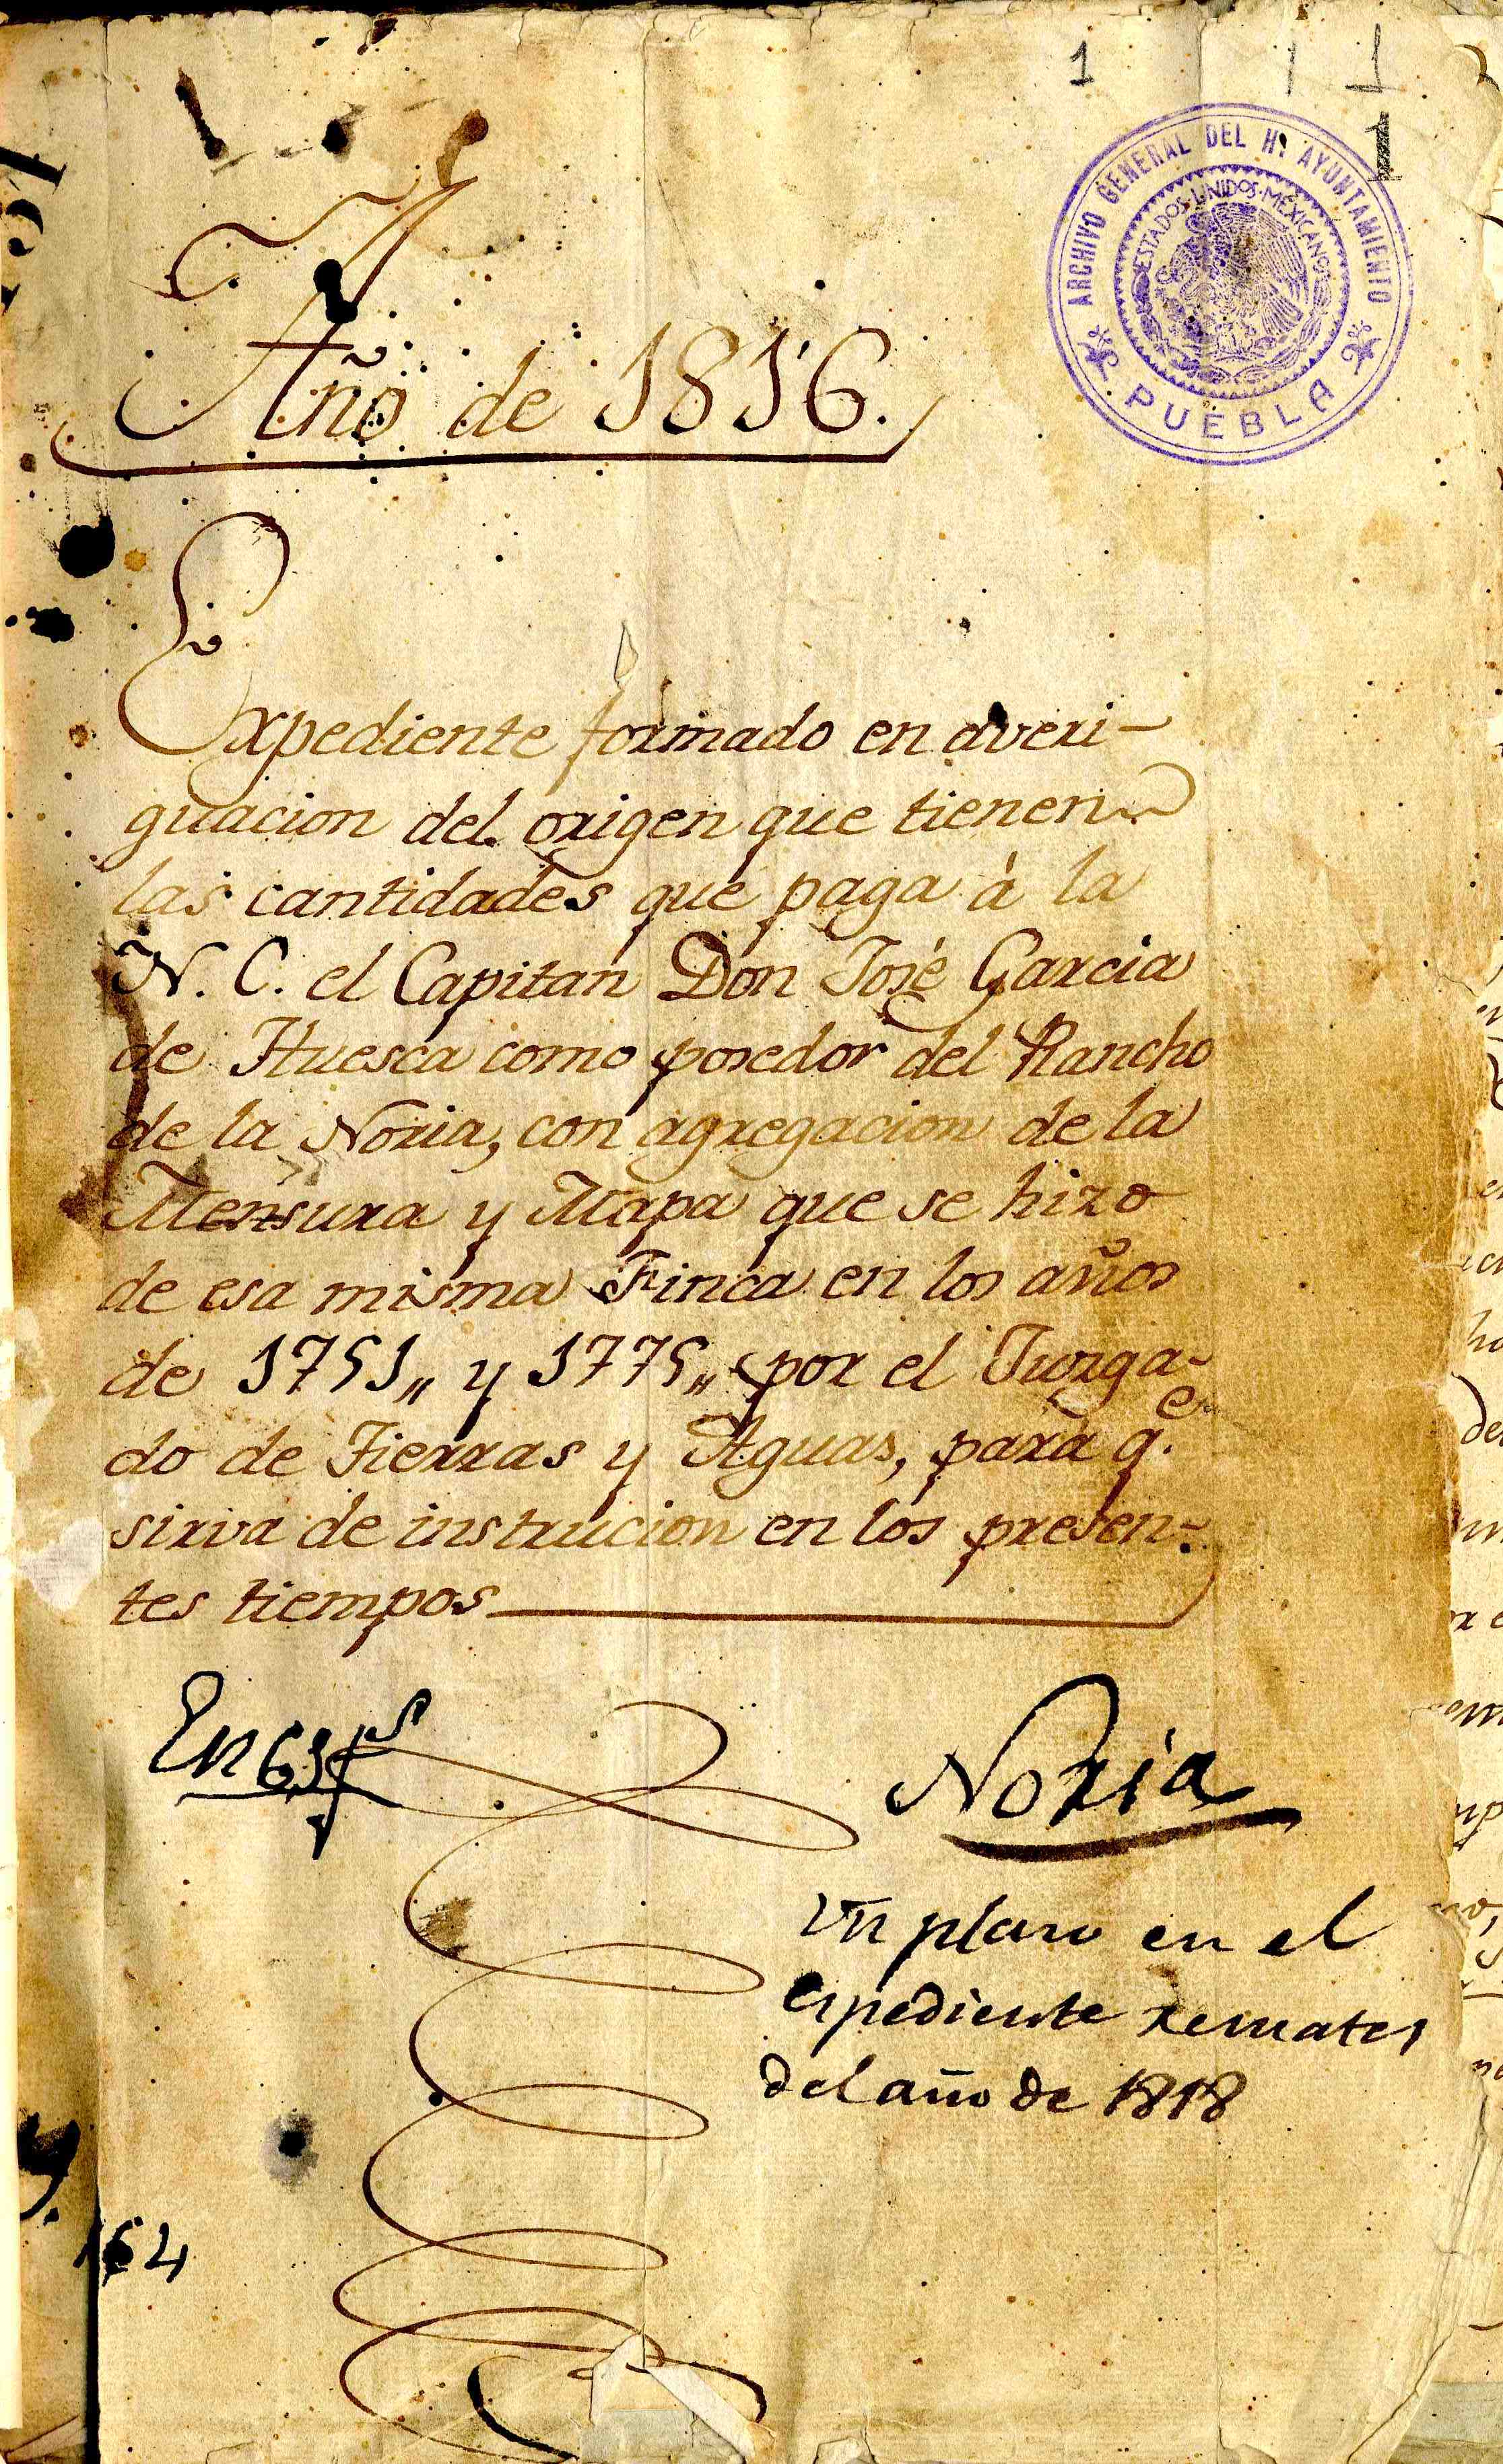 1 1 1
1
ARCHIVO GENERAL DEL H. AYUNTAMIENTO
ESTADOS UNIDOS MEXICANOS
PUEBLA
Año de 1816.
Expediente formado en averi-
guacion del origen que tienen
las cantidades que paga à la
N. C. el Capitan Don José Garcia
de Huesca como posedor del Rancho
de la Noria, con agregacion de la
Mensura y Mapa que se hizo
de esa misma Finca en los años
de 1751,, y 1775,, por el Juzga-
do de Tierras y Aguas, para q.e
sirva de instrucion en los presen-
tes tiempos
En 63 f s
Noria
Un plano en el
espediente remates
del año de 1818
164